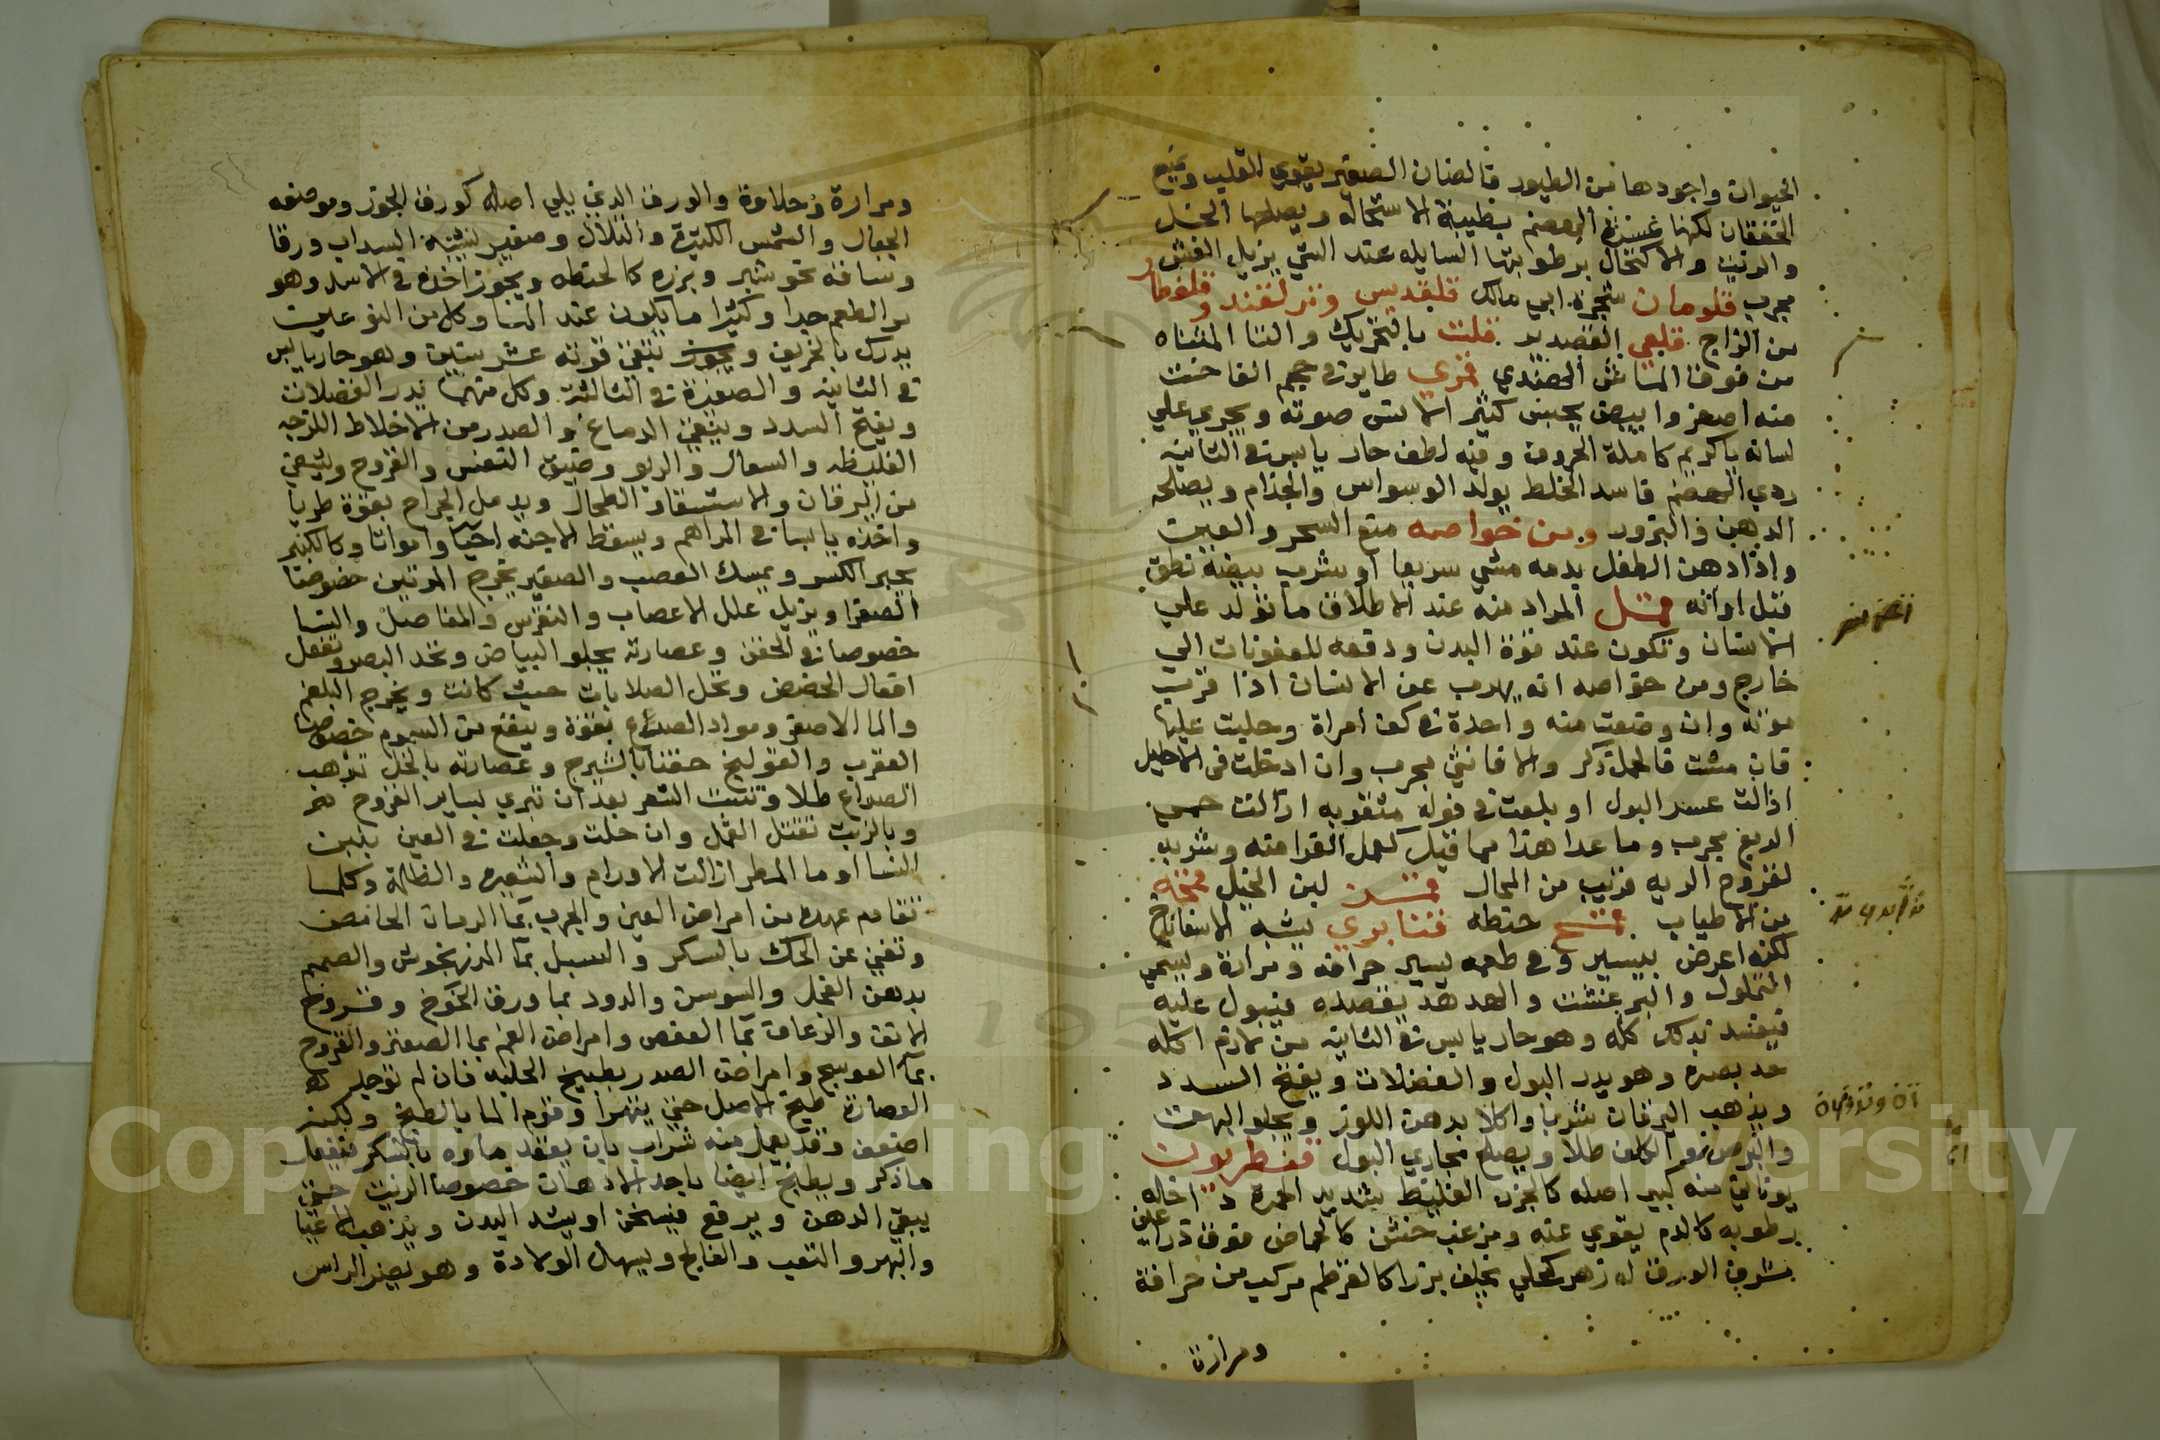 الحيوان واجودها من الطيور فالضان الصغير يقوي القلب ويمنع
الخفقان لكنها عسرة الهضم بطيئة الاستحالة ويصلحها الخل
والزيت والاكتحال برطوبتها السايله عند الشي يزيل الغشا
مجرب قلومان شجرة ابي مالك قلقديس وقلقند وقلقطار
من الزاج قلعي القصدير قلت بالتحريك والتا المثناه
من فوق الماش الهندي قمري طاير في حجم الفاخت
منه اصفر وابيض يحبس كثير الانس صوته ويجري علي
لسانه ياكريم كاملة الحروف وفيه لطف حار يابس في الثانيه
ردي الهضم فاسد الخلط يولد الوسواس والجذام ويصلحه
الدهن والبزور ومن خواصه منع السحر والعين
واذا دهن الطفل بدمه مشي سريعا او شرب بيضه نطق
قبل اوانه قمل المراد منه عند الاطلاق ما تولد علي
الانسان وتكون عند قوة البدن ودفعه للعفونات الي
خارج ومن خواصه انه يهرب عن الانسان اذا قرب
موته وان وضعت منه واحدة في كف امراة وحلبت عليها
فان مشت فالحمل ذكر والا فانثي مجرب وان ادخلت في الاحليل
ازالت عسر البول او بلعت في فوله مثقوبه ازالت حمي
الربع مجرب وما عدا هذا مما قيل كعمل القرا منه وشربه
لقروح الريه قريب من المحال لبن الخيل قمحه
من الاطياب قمح حنطه قنابري يشبه الاسفاناخ
لكنه اعرض بيسير وفي طعمه يسير حرافه ومرارة ويسمي
التملول والبرغشت والهدهد يقصده فيبول عليه
فيفسد بذلك كله وهو حار يابس في الثانيه من لازم اكله
حد بصره وهو يدر البول والفضلات ويفتح السدد
ويذهب اليرقان شربا واكلا بدهن اللوز ويجلو البهق
والبرص والكلف طلا ويصلح مجاري البول قنطريون
يوناني منه كبير اصله كالجزر الغليظ شديد الحمرة داخله
رطوبه كالدم يقوي عنه ومزغب خشن كالحماض فوق ذراعين
مشرف الورق له زهر كحلي يخلف بزرا كالقرطم مركب من حرافة
ومرارة
ومرارة وحلاوة والورق الذي يلي اصله كورق الجوز وموضعه
الجبال والشمس الكثيرة والتلال وصغير يشبه السداب ورقا
وساقه نحو شبر وبزره كالحنطه ويجوز اخذه في الاسد وهو
مر الطعم جدا وكثيرا ما يكون عند المياه وكل من النوعين
يدرك بالخريف تبقي قوته عشر سنين وهو حار يابس
في الثانيه والصغيرة في الثالثة وكل منهما يدر الفضلات
ويفتح السدد وينقي الدماغ والصدر من الاخلاط اللزجه
الغليظه والسعال والربو وضيق النفس والقروح ويشفي
من اليرقان والاستسقا والطحال ويدمل الجراح بقوة طريا
واخذه يابسا في المراهم ويسقط الاجنه احيا وامواتا وكالكبير
يجبر الكسر ويمسك العصب والصغير يخرج المرتين خصوصا
الصفرا ويزيل علل الاعصاب والنقرس والمفاصل والنسا
خصوصا في الحقن وعصارته يجلو البياض وتحد البصر وتفعل
افعال الحضض وتحل الصلابات حيث كانت ويخرج البلغم
والما الاصفر ومواد الصداع بقوة وينفع من السموم خصوصا
العقرب والقولنج حقنا بالشيرج وعصارته بالخل تذهب
الصداع طلا وتنبت الشعر بعد ان تبري لساير القروح
وبالزيت تقتل القمل وان حلت وجعلت في العين بلبن
النسا او ما المطر ازالت الاورام والشعيره والظلمة وكلما
تقادم عهده من امراض العين والجرب بما الرمان الحامض
وتغني عن الحك بالسكر والسبل بما المرزنجوش والصمم
بدهن الفجل والسوسن والدود بما ورق الخوخ وقروح
الانف والرعاف بما العفص وامراض الفم بما الصعتر والقروح
بما العوسج وامراض الصدر بطبيخ الحلبه فان لم توجد
العصارة طبخ الاصل حتي يتهرا وقوم الما بالطبخ ولكنه
اضعف وقد يعمل منه شراب بان يعقد ماوه بالسكر فيفعل
ما ذكر ويطبخ ايضا باحد الادهان خصوصا الزيت حتي
يبقي الدهن ويرفع فيسخن او يشد البدن ويذهب الاعيا
والبهر والتعب والفالج ويسهل الولادة وهو يضر الراس